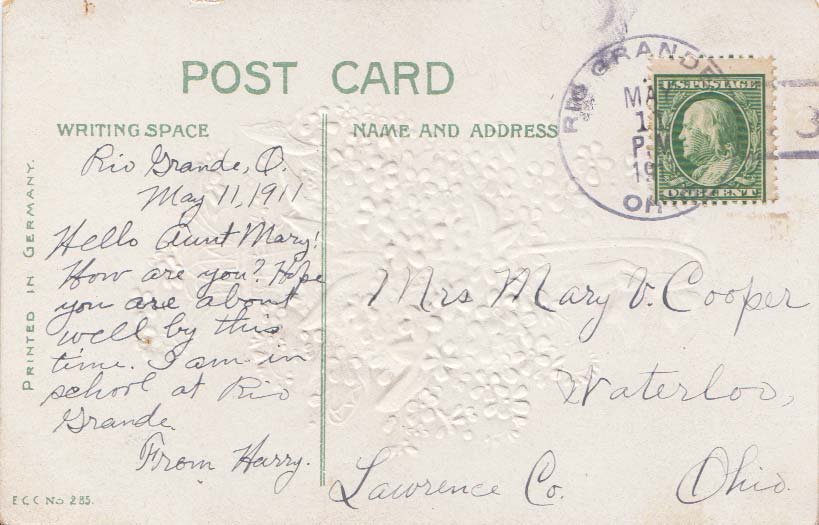 POST CARD
WRITING SPACE
NAME AND ADDRESS
PRINTED IN GERMANY.
Rio Grande, O.
May 11, 1911
Hello Aunt Mary!
How are you? Hope
you are about
well by this
time. I am in
school at Rio
Grande.
From Harry.
E C C No 285.
RIO GRANDE
MAY
11
P.M
19
OH
3
U.S. POSTAGE
ONE CENT
Mrs Mary V. Cooper
Waterloo,
Lawrence Co. Ohio.